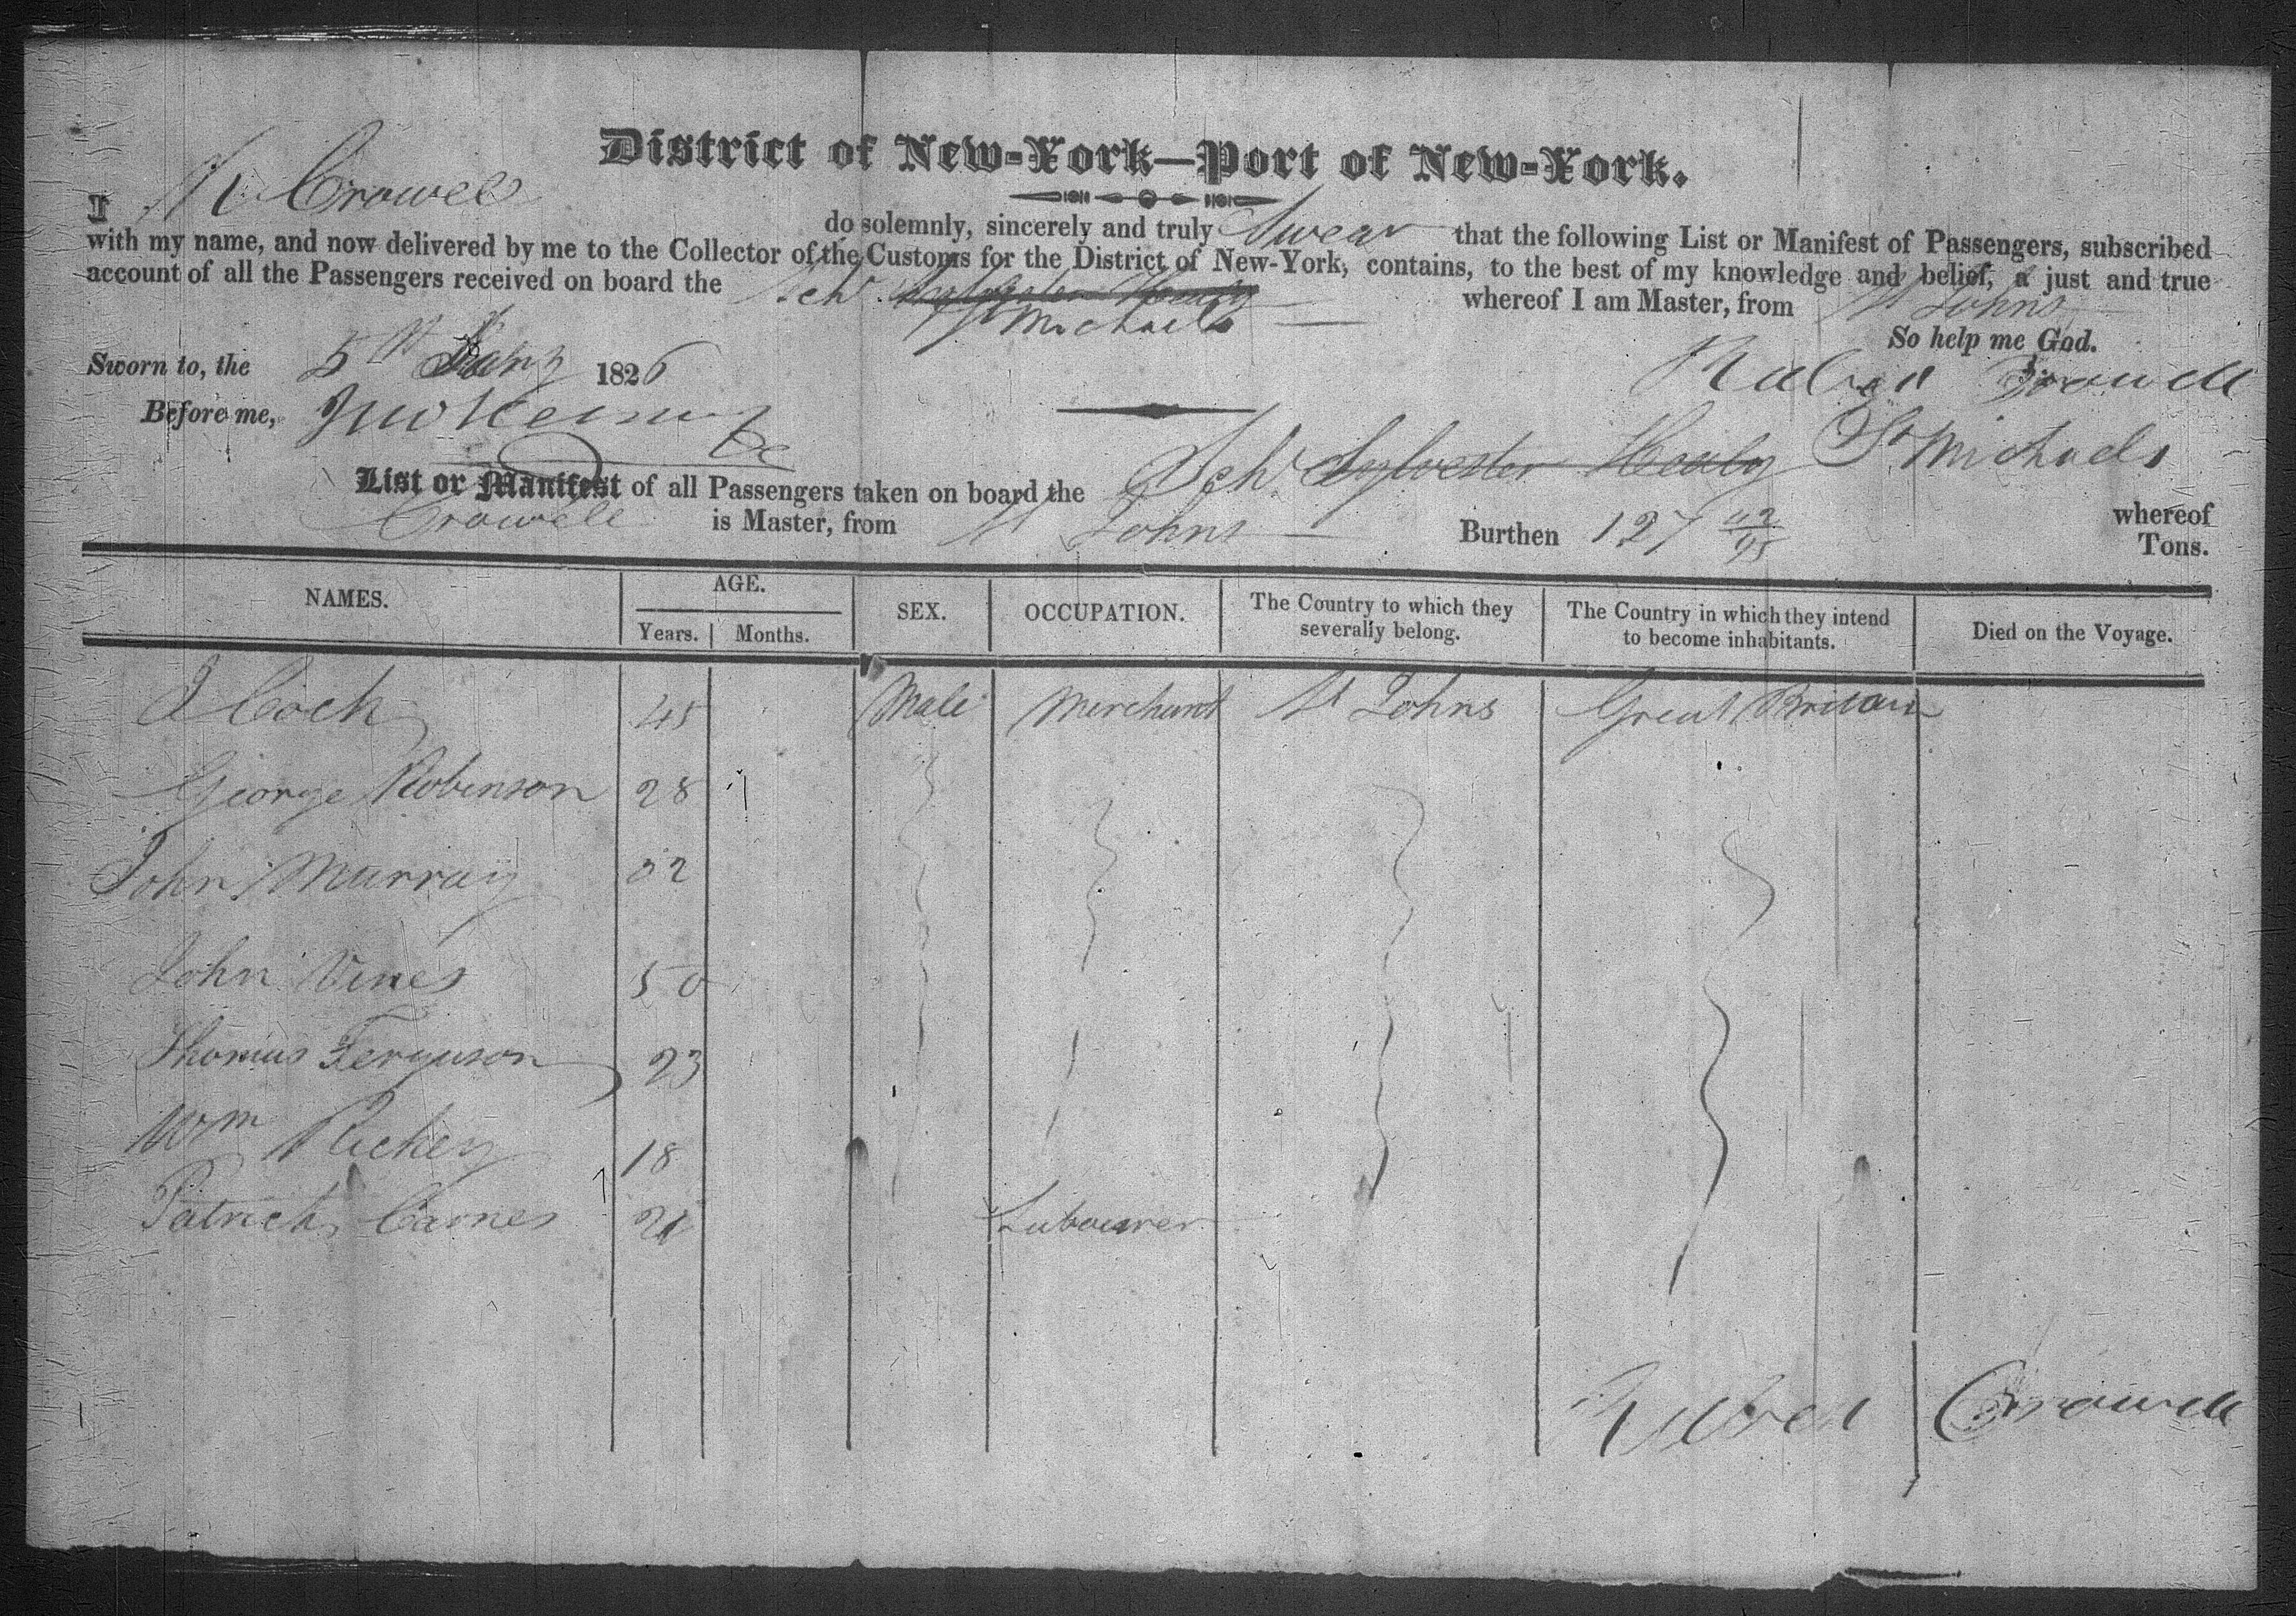 District of New-York—Port of New-York.
I R Crowell do solemnly, sincerely and truly Swear that the following List or Manifest of Passengers, subscribed
with my name, and now delivered by me to the Collector of the Customs for the District of New-York, contains, to the best of my knowledge and belief, a just and true
account of all the Passengers received on board the Sch Sylvester Healy St Michaels whereof I am Master, from St Johns
So help me God.
Sworn to, the 5th Jany 1826
Crowell
Before me,
List or Manifest of all Passengers taken on board the Sch Sylvester Healy St Michaels whereof
Crowell is Master, from St Johns Burthen 127 42/95 Tons.
NAMES. AGE. SEX. OCCUPATION. The Country to which they severally belong. The Country in which they intend to become inhabitants. Died on the Voyage.
Years. Months.
J Coch 45 Male Merchant St Johns Great Britain
George Robinson 28
John Murray 32
John Vines 50
Thomas Ferguson 23
Wm Richey 18
Patrick Carnes 21 Labourer
Crowell